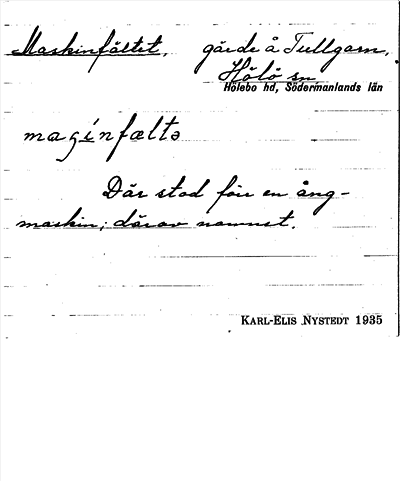 Maskinfältet, gärde å Tullgarn,
Hölö sn,
Hölebo hd, Södermanlands län
maʃínfæltə
Där stod förr en ång-
maskin; därav namnet.
KARL-ELIS NYSTEDT 1935